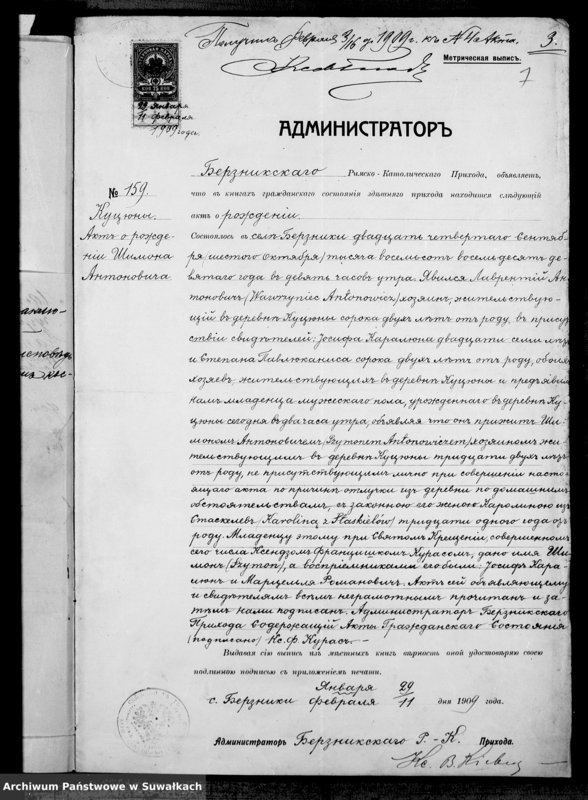 Получила февраля 3/16 д. 1909 г. къ № 4 акта.
3.
Метрическая выпись.
7
29 Января
11 февраля
1909 года.
АДМИНИСТРАТОРЪ
Берзникскаго Римско-Католическаго Прихода, объявляетъ,
что въ книгахъ гражданскаго состоянія здѣшняго прихода находится слѣдующій
актъ о рожденіи.
№ 159.
Куцюны.
Актъ о рожде-
ніи Шимона
Антоновича.
Состоялось въ селѣ Берзники двадцать четвертаго Сентяб-
ря (шестого октября) тысяча восемьсотъ восемьдесятъ де-
вятаго года въ девять часовъ утра. Явился Лаврентій Ан-
тоновичъ (Wawrzyniec Antonowicz) хозяинъ, жительствую-
щій въ деревнѣ Куцюны сорока двухъ лѣтъ отъ роду, въ присут-
ствіи свидѣтелей: Іосифа Каралюна двадцати семи лѣтъ
и Степана Павлюканиса сорока двухъ лѣтъ отъ роду, обоихъ
хозяевъ, жительствующихъ въ деревнѣ Куцюна и предъявилъ
намъ младенца мужескаго пола, урожденнаго въ деревнѣ Ку-
цюны сегодня въ два часа утра, объявляя что онъ прижитъ Ши-
мономъ Антоновичемъ (Szymonem Antonowiczem) хозяиномъ жи-
тельствующимъ въ деревнѣ Куцюны тридцати двухъ лѣтъ
отъ роду, не присутствующимъ лично при совершеніи насто-
ящаго акта по причинѣ отлучки изъ деревни по домашнимъ
обстоятельствамъ, съ законною его женою Каролиною изъ
Стаскелевъ (Karoliną z Staskielów) тридцати одного года отъ
роду. Младенцу этому при Святомъ Крещеніи, совершенномъ
сего числа Ксендзомъ Францишкомъ Курасомъ, дано имя Ши-
монъ (Szymon), а воспріемниками его были: Іосифъ Кара-
люнъ и Марцелля Романовичъ. Актъ сей объявляющему
и свидѣтелямъ всѣмъ неграмотнымъ прочитанъ и за-
тѣмъ нами подписанъ. Администраторъ Берзникскаго
Прихода Содержащій Акты Гражданскаго Состоянія
(подписано) Кс. Ф. Курасъ. —
Выдавая сію выпись изъ мѣстныхъ книгъ вѣрность оной удостовѣряю своею
подлинною подписью съ приложеніемъ печати.
с. Берзники Января 29 / февраля 11 дня 1909 года.
Администраторъ Берзникскаго Р.-К. Прихода.
Кс. В.
Archiwum Państwowe w Suwałkach